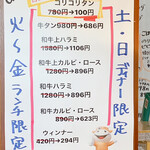 コリコリタン
780円→100円
牛タン 980円→686円
和牛上ハラミ
1580円→1106円
和牛上カルビ・ロース
1280円→896円
和牛ハラミ
1280円→896円
和牛カルビ・ロース
890円→623円
ウィンナー
420円→294円
土・日ディナー限定
火〜金ランチ限定